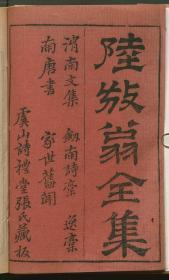 陸放翁全集
渭南文集 劔南詩稾 逸稾
南唐書 家世舊聞
虞山詩禮堂張氏藏板